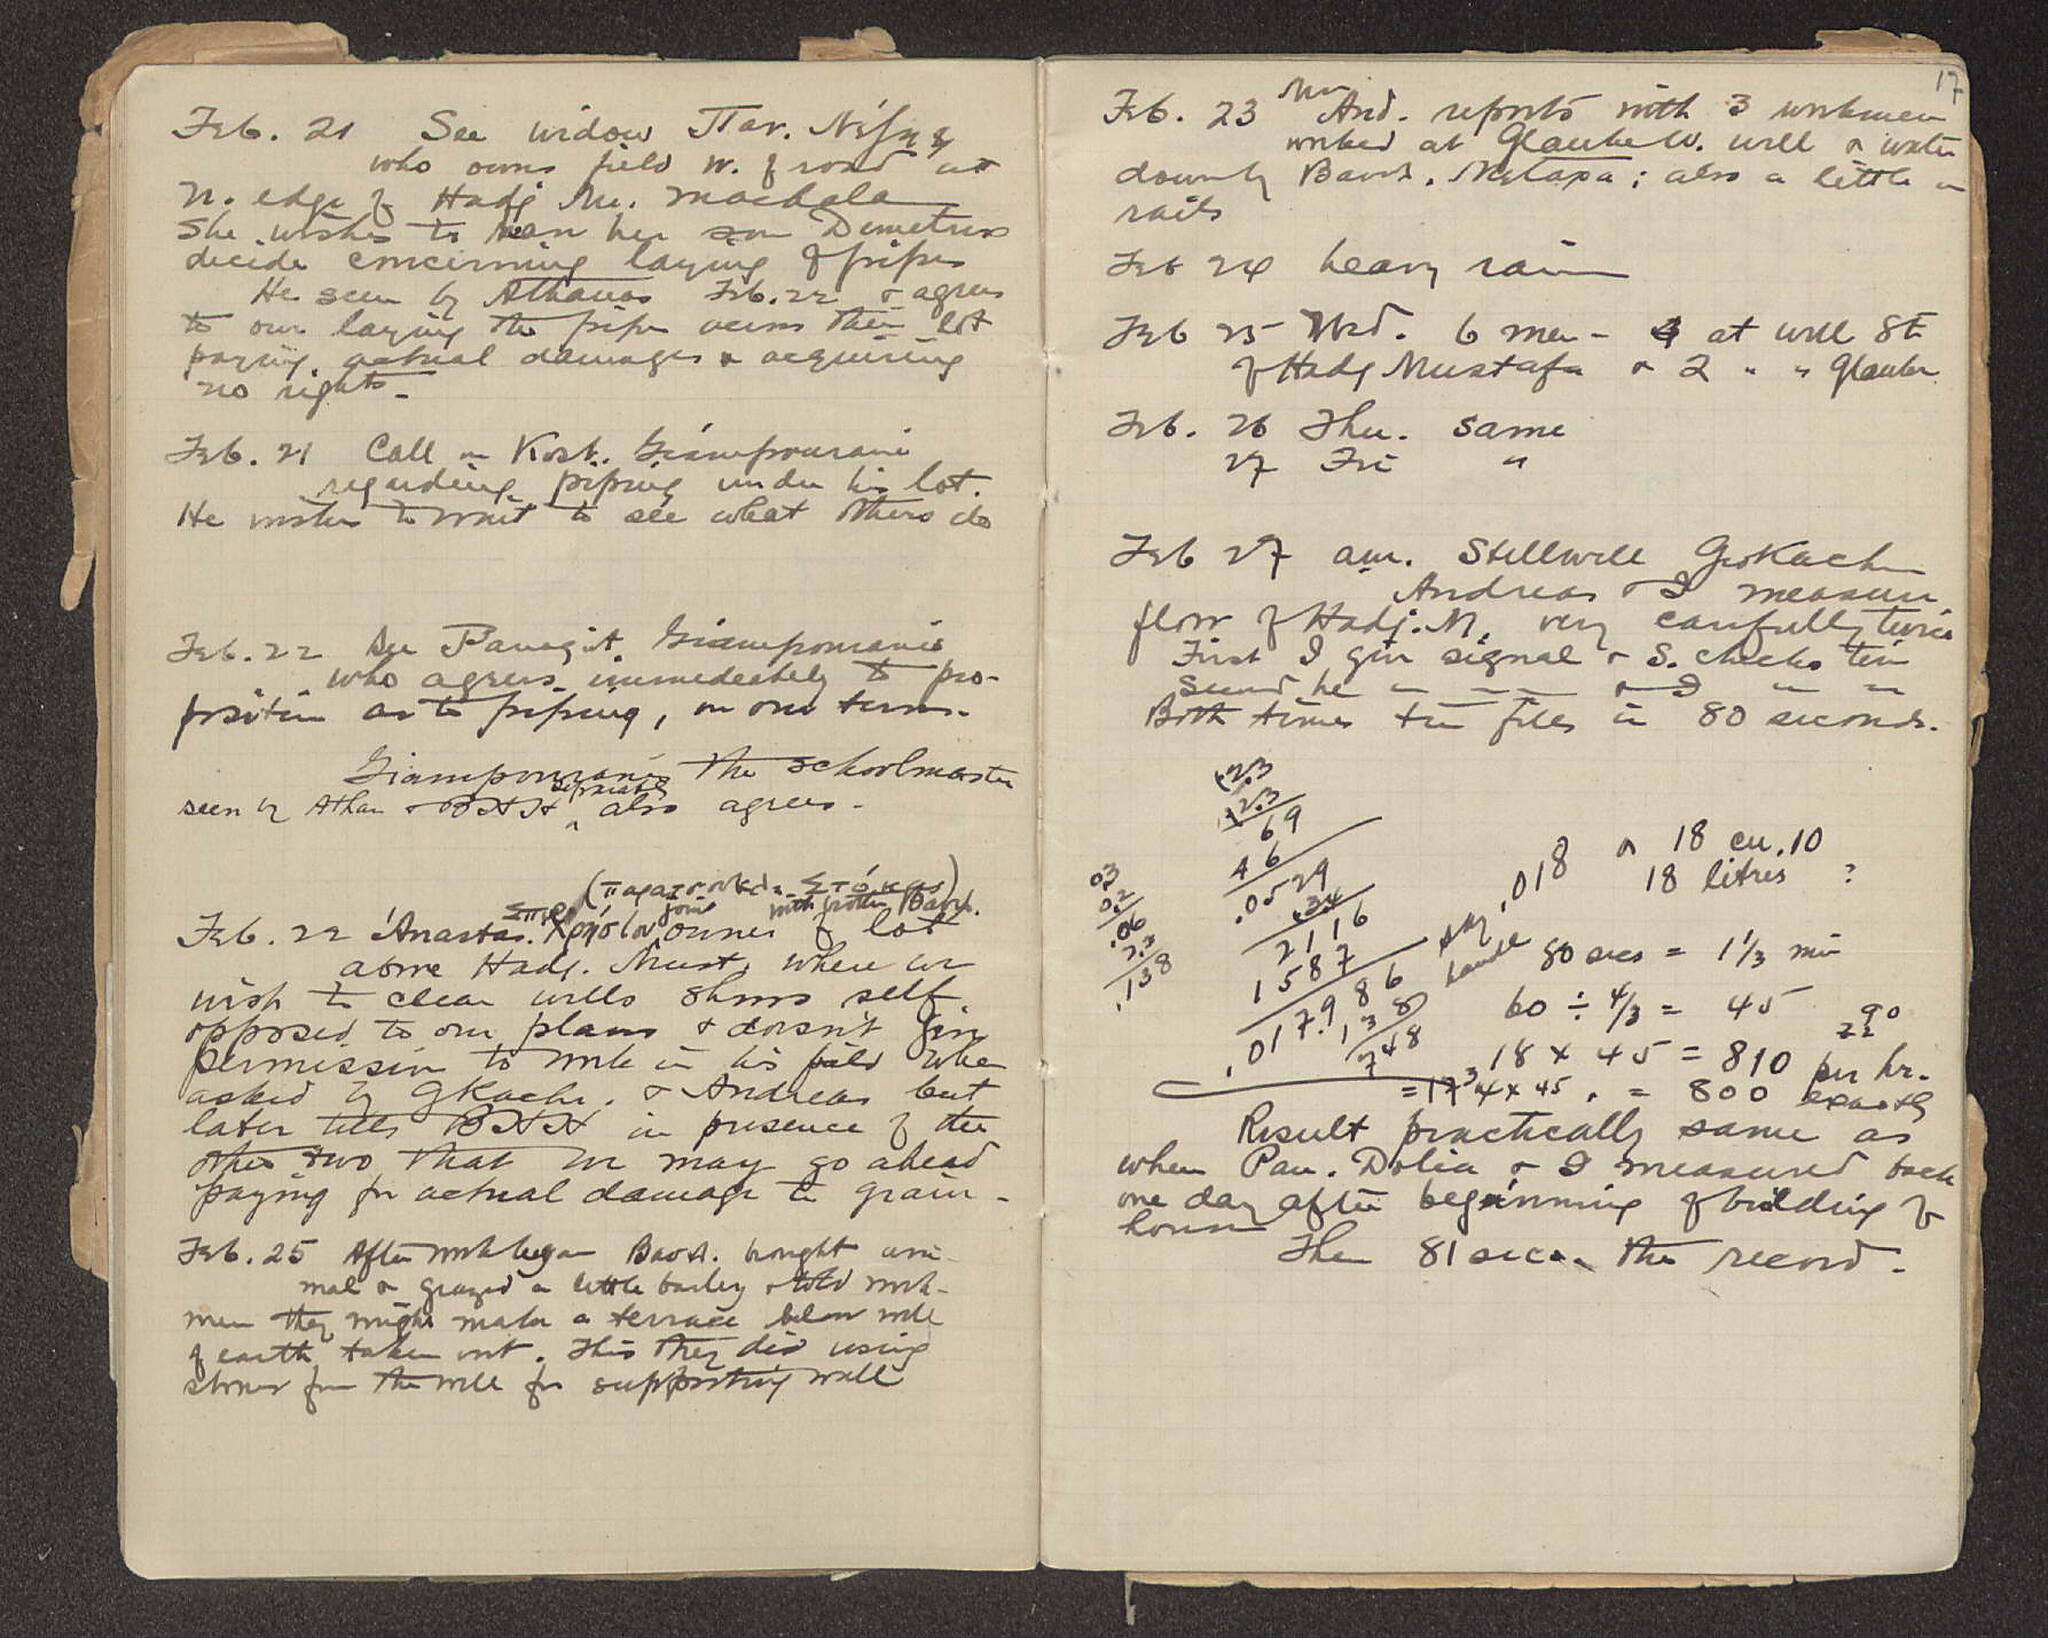 Feb. 21 See widow Παν.
who owns field W. of road at
N. edge of Hadj Mu. machala
She wishes to have her son Demetrios
decide concerning laying of pipes
He seen by Athanas Feb. 22 & agrees
to our laying the pipe across their lot
paying actual damages & acquiring
no rights -
Feb. 21 Call on Kost. Giampourani
regarding piping under his lot.
He wishes to wait to see what others do
Feb. 22 See Panagiot. Giampouranis
who agrees immediately to pro-
position as to piping, on our terms.
Giampouranis the schoolmaster
separately
seen by Athan & BHH ^ also agrees -
joint with brother Basil.
Feb. 22 Ἀναστας. owner of lot
above Hadj. Must. where we
wish to clear wells shows self
opposed to our plans & doesn't give
permission to work in his field when
asked by GKachr. & Andreas but
later tells BHH in presence of the
other two that we may go ahead
paying for actual damage to grain -
Feb. 25 After work began brought ani-
mal & grazed a little barley & told work-
men they might make a terrace below well
of earth taken out. This they did using
stones from the well for supporting wall
17
Feb. 23 Mon And. reports with 3 workmen
worked at Glauke W. well & water
down by ; also a little in
rails
Feb 24 heavy rain
Feb 25 Wed. 6 men - 4 at well St
of Hadj Mustafa & 2 " " Glauke
Feb. 26 Thu. same
27 Fri "
Feb 27 am. Stillwell GKachr
Andreas & I measure
flow of Hadj. M. very carefully twice
First I give signal & S. checks tin
Second he " " " & I " "
Both times tin fills in 80 seconds.
.23
.23
69
46
.0529
.34
2116
1587
.017986
.138
748
03
02
.06
2.3
.138
say .018 or 18 cu. 10
18 litres ?
80 secs = 1 1/3 min
60 ÷ 4/3 = 45
90
72
18 x 45 = 810 per hr.
= 17 3/4 x 45 . = 800 exactly
Result practically same as
when Pan. Dolia & I measured back
one day after beginning of building of
house
Then 81 secs. the record.